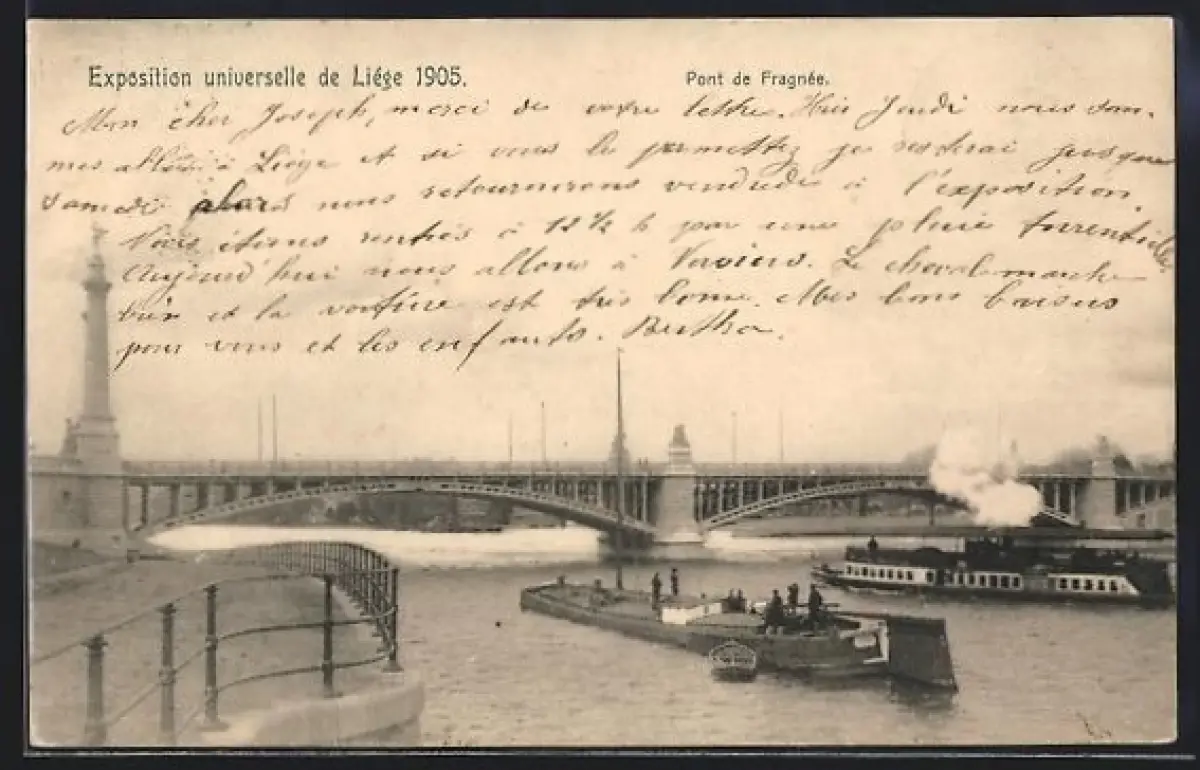 Exposition universelle de Liége 1905.
Pont de Fragnée.
Mon cher Joseph, merci de votre lettre. Hier Jeudi nous som-
mes allés à Liège et si vous le permettez je resterai jusque
samedi alors nous retournerons vendredi à l'exposition.
étions rentrés à 12 ½ h par une pluie torrentielle
Aujourd'hui nous allons à Verviers. Le cheval marche
bien et la voiture est très bonne. Mes bons baisers
pour vous et les enfants. Bertha.